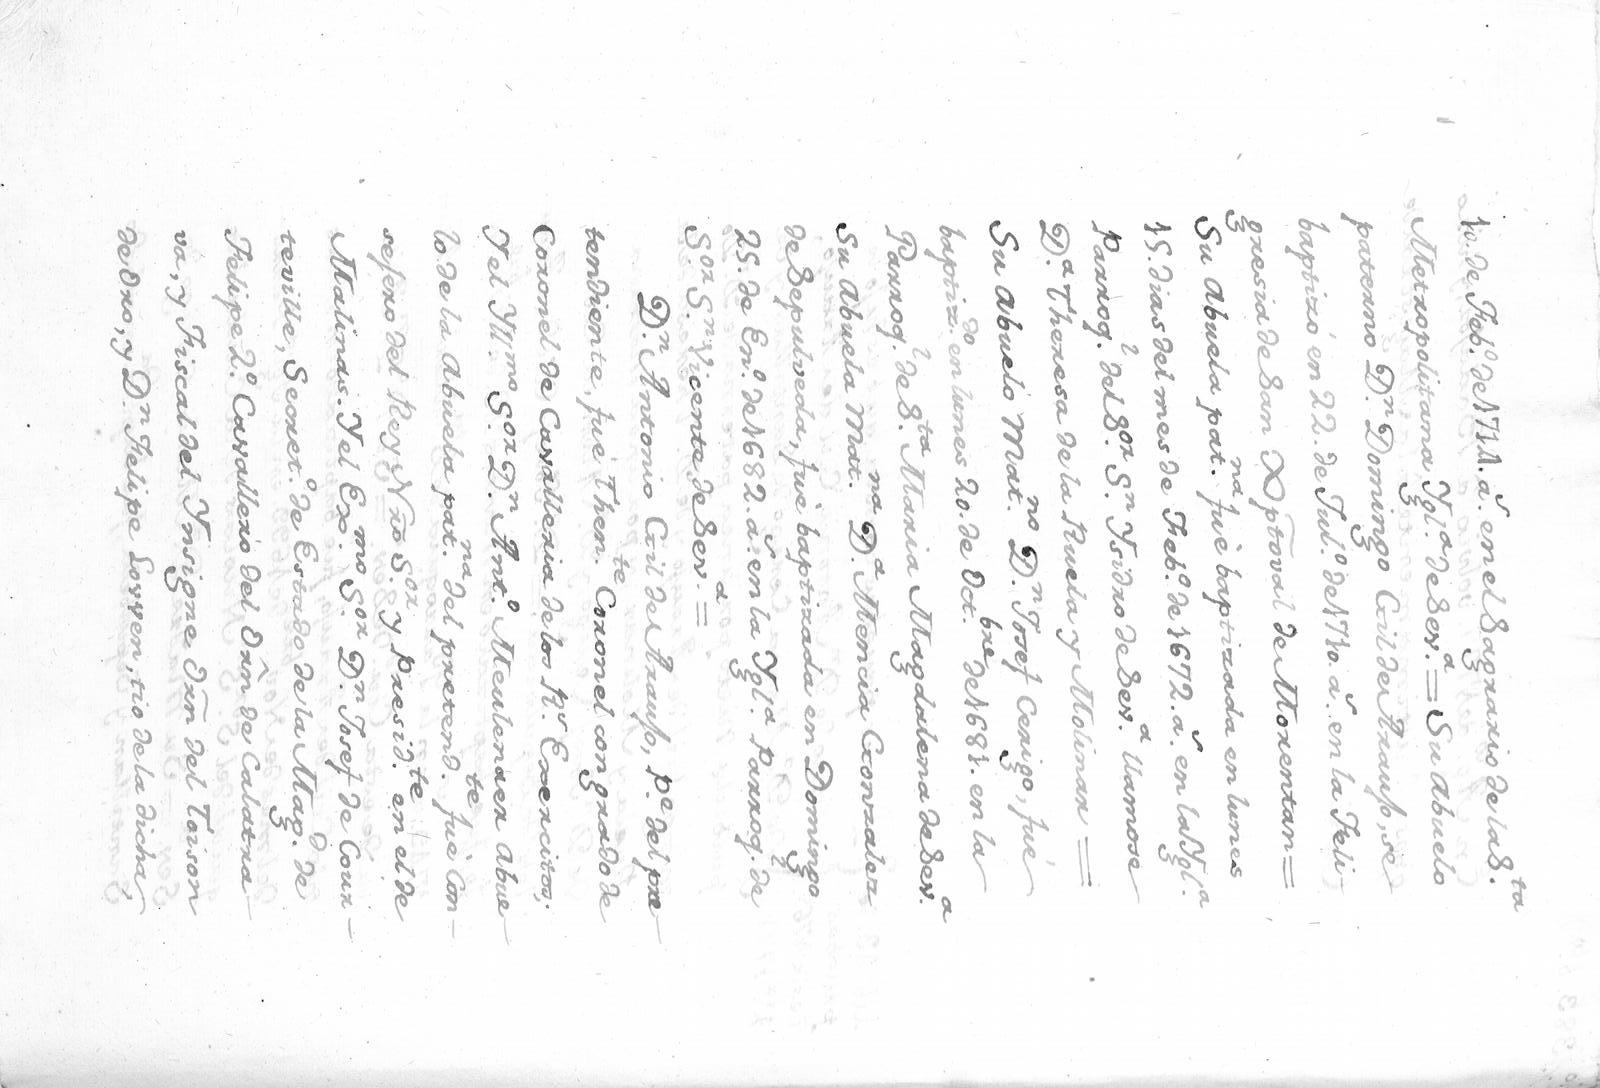 10. de Feb.º de 1711. a.ˢ en el Sagrario de la S.ta
Metropolitana Ygl.ª de Sev.ª = Su Abuelo
paterno D.n Domingo Gil de Araujo, se
baptizó en 22. de Jul.º de 1710. a.ˢ en la Feli-
gresia de San Xptoval de Morentan =
Su Abuela pat.na fué baptizada en lunes
15. dias del mes de Feb.º de 1672. a.ˢ en la Ygl.ª
Parroq.l del S.or S.n Ysidro de Sev.ª llamose
D.ª Theresa de la Ruela y Molinar =
Su Abuelo Mat.no D.n Josef Cerigo, fué
baptiz.do en lunes 20. de Oct.bre de 1681. en la
Parroq.l de S.ta Maria Magdalena de Sev.ª
Su Abuela Mat.na D.ª Mencia Gonzalez
de Sepulveda, fué baptizada en Domingo
25. de En.º de 1682. a.ˢ en la Ygl.ª Parroq.l de
S.or S.n Vicente de Sev.ª =
D.n Antonio Gil de Araujo, P.e del pre-
tendiente, fué Then.te Coronel con grado de
Coronel de Cavalleria de los R.s Exercitos;
Y el Yll.mo S.or D.n Ant.º Meulenaer Abue-
lo de la Abuela pat.na del pretend.te fué Con-
sejero del Rey Nro S.or y Presid.te en el de
Malinas. Y el Ex.mo S.or D.n Josef de Cour-
teville, Secret.º de Estado de la Mag.d de
Felipe 2.º Cavallero del Orñ de Calatra-
va, y Fiscal del Ynsigne Orñ del Toison
de Oro, y D.n Felipe Loyzen, tio de la dicha